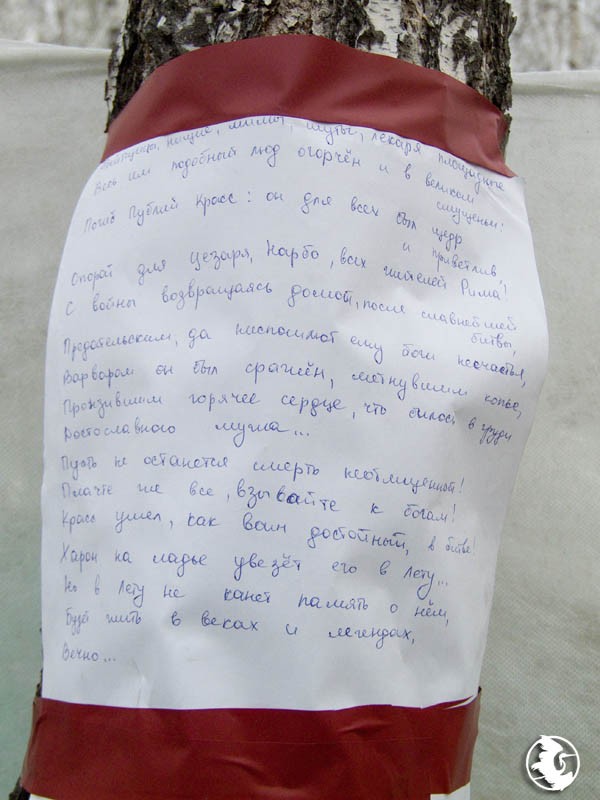 нищие, мимы, шуты, лекаря площадные
Весь им подобный люд огорчён и в великом смущеньи:
Погиб Публий Красс: он для всех был щедр и приветлив,
Опорой для Цезаря, Нарбо, всех жителей Рима!
С войны возвращаясь домой, после славнейшей битвы,
Предательским, да ниспошлют ему боги несчастья,
Варваром он был сражён, метнувшим копьё,
Пронзившим горячее сердце, что билось в груди
Достославного мужа...
Пусть не останется смерть неотмщенной!
Плачте же все, взывайте к богам!
Красс ушел, как воин достойный, в битве!
Харон на ладье увезёт его в Лету...
Но в Лету не канет память о нём,
Будет жить в веках и легендах,
Вечно...